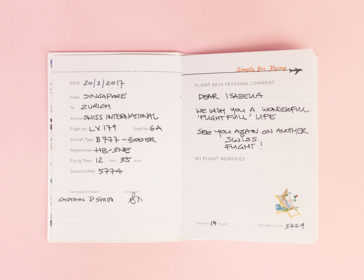 DATE 20/3/2017
From SINGAPORE
To ZURICH
Airline SWISS INTERNATIONAL
Flight No LX 179 Seat No 6A
Aircraft Type B777-300ER
Registration HB-JNE
Flying Time 12 hrs 35 mins
Distance flown 5774
CAPTAIN P SMITH
Simply for Flying
FLIGHT DECK PERSONAL COMMENT
DEAR ISABELLA
WE WISH YOU A WONDERFUL
"FLIGHTFULL" LIFE
SEE YOU AGAIN ON ANOTHER
SWISS
FLIGHT!
MY FLIGHT MEMORIES